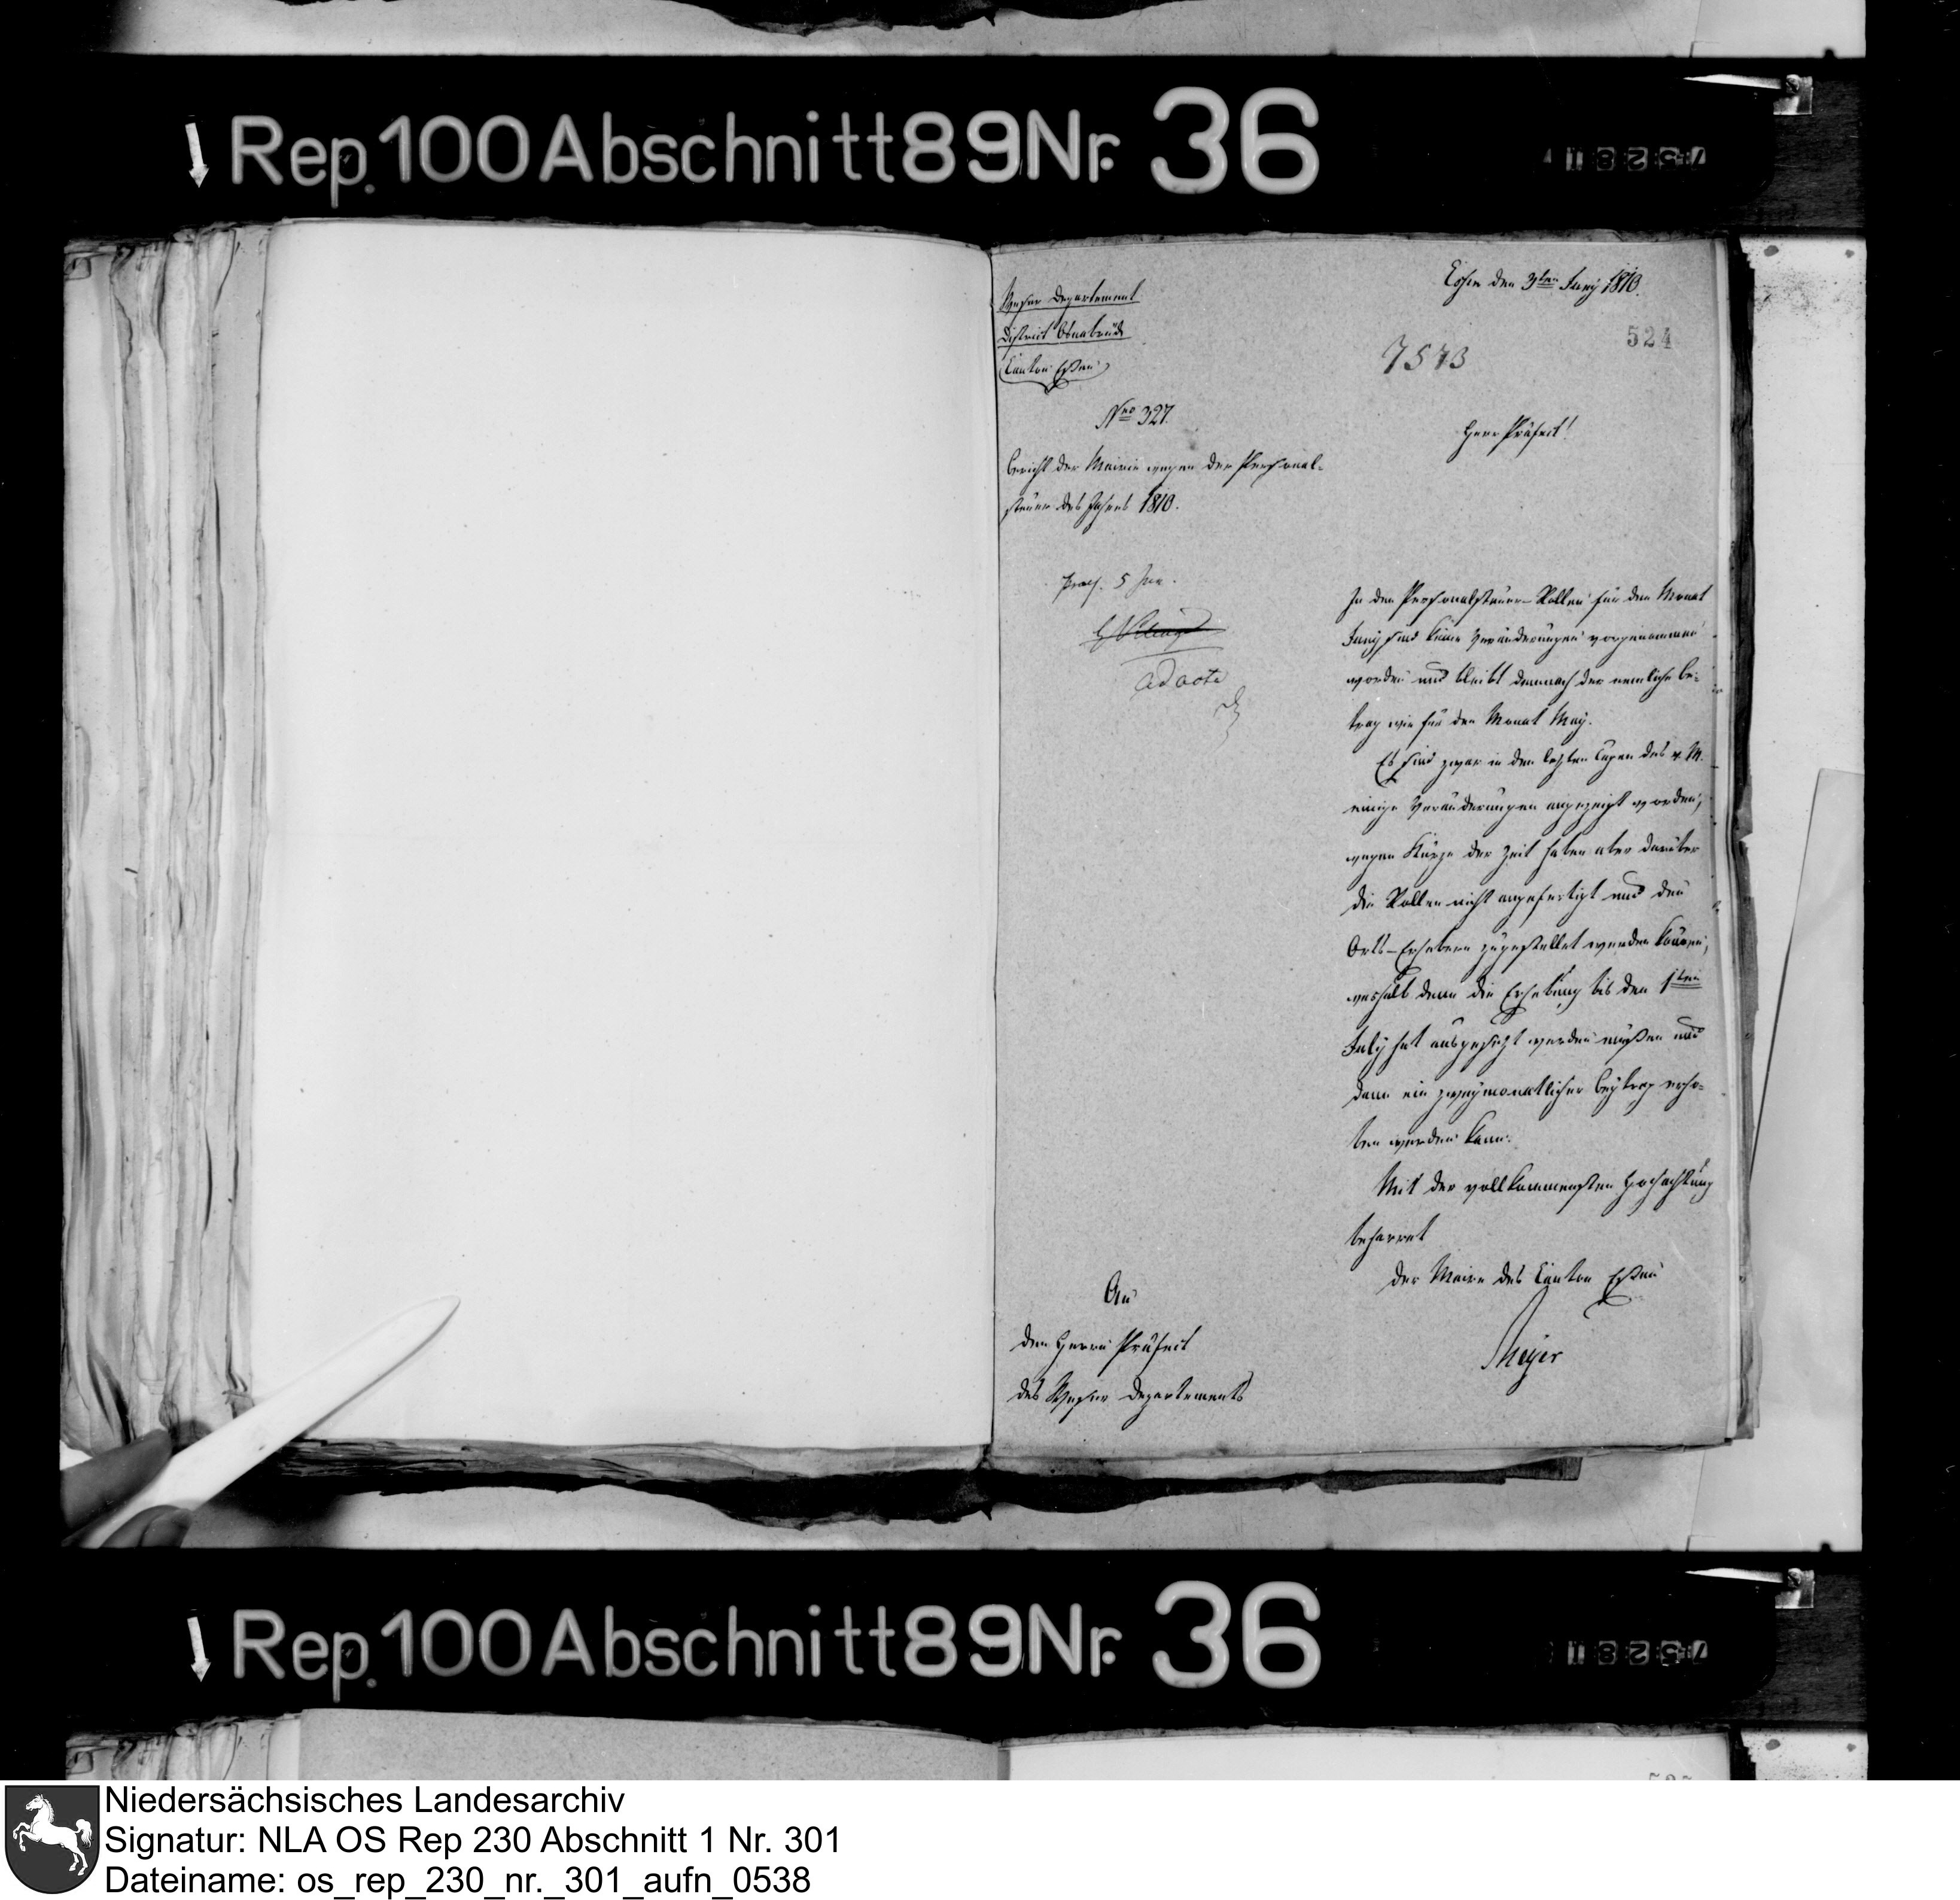 Rep. 100 Abschnitt 89 Nr. 36
Weser Departement
District Osnabrück
Canton Eßen
Eßen den 3ten Juny 1810.
524
7573
Nro 327.
Herr Präfect!
Bericht der Mairie wegen der Personal-
steuer des Jahres 1810.
praes. 5 Jun.
ad acta
In den Personalsteuer-Rollen für den Monat
Juny sind keine Veränderungen vorgenommen
worden und bleibt demnach der nemliche Be-
trag wie für den Monat May.
Es sind zwar in den letzten Tagen des v. M.
einige Veränderungen angezeigt worden,
wegen Kürze der Zeit haben aber darüber
die Rollen nicht angefertigt und den
Orts-Erhebern zugestellet werden können,
weshalb denn die Erhebung bis den 1ten
July hat ausgesetzt werden müßen und
dann ein zweymonatlicher Beytrag erho-
ben werden kann.
Mit der vollkommensten Hochachtung
beharret
der Maire des Canton Eßen
Meyer
An
den Herrn Präfect
des Weser Departements
Rep. 100 Abschnitt 89 Nr. 36
Niedersächsisches Landesarchiv
Signatur: NLA OS Rep 230 Abschnitt 1 Nr. 301
Dateiname: os_rep_230_nr._301_aufn_0538